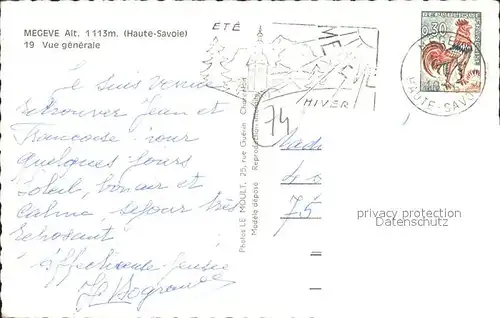 MEGEVE Alt. 1113m. (Haute-Savoie)
19 Vue générale
ÉTÉ
HIVER
0,30
HAUTE-SAVOIE
74
Je suis venue
retrouver Jean et
Françoise pour
quelques jours
soleil, bon air et
calme, séjour très
reposant
affectueuse pensée
Photos LE MOULT, 25, rue Guérin
Modèle déposé Reproduction
Mad
4
75
privacy protection
Datenschutz